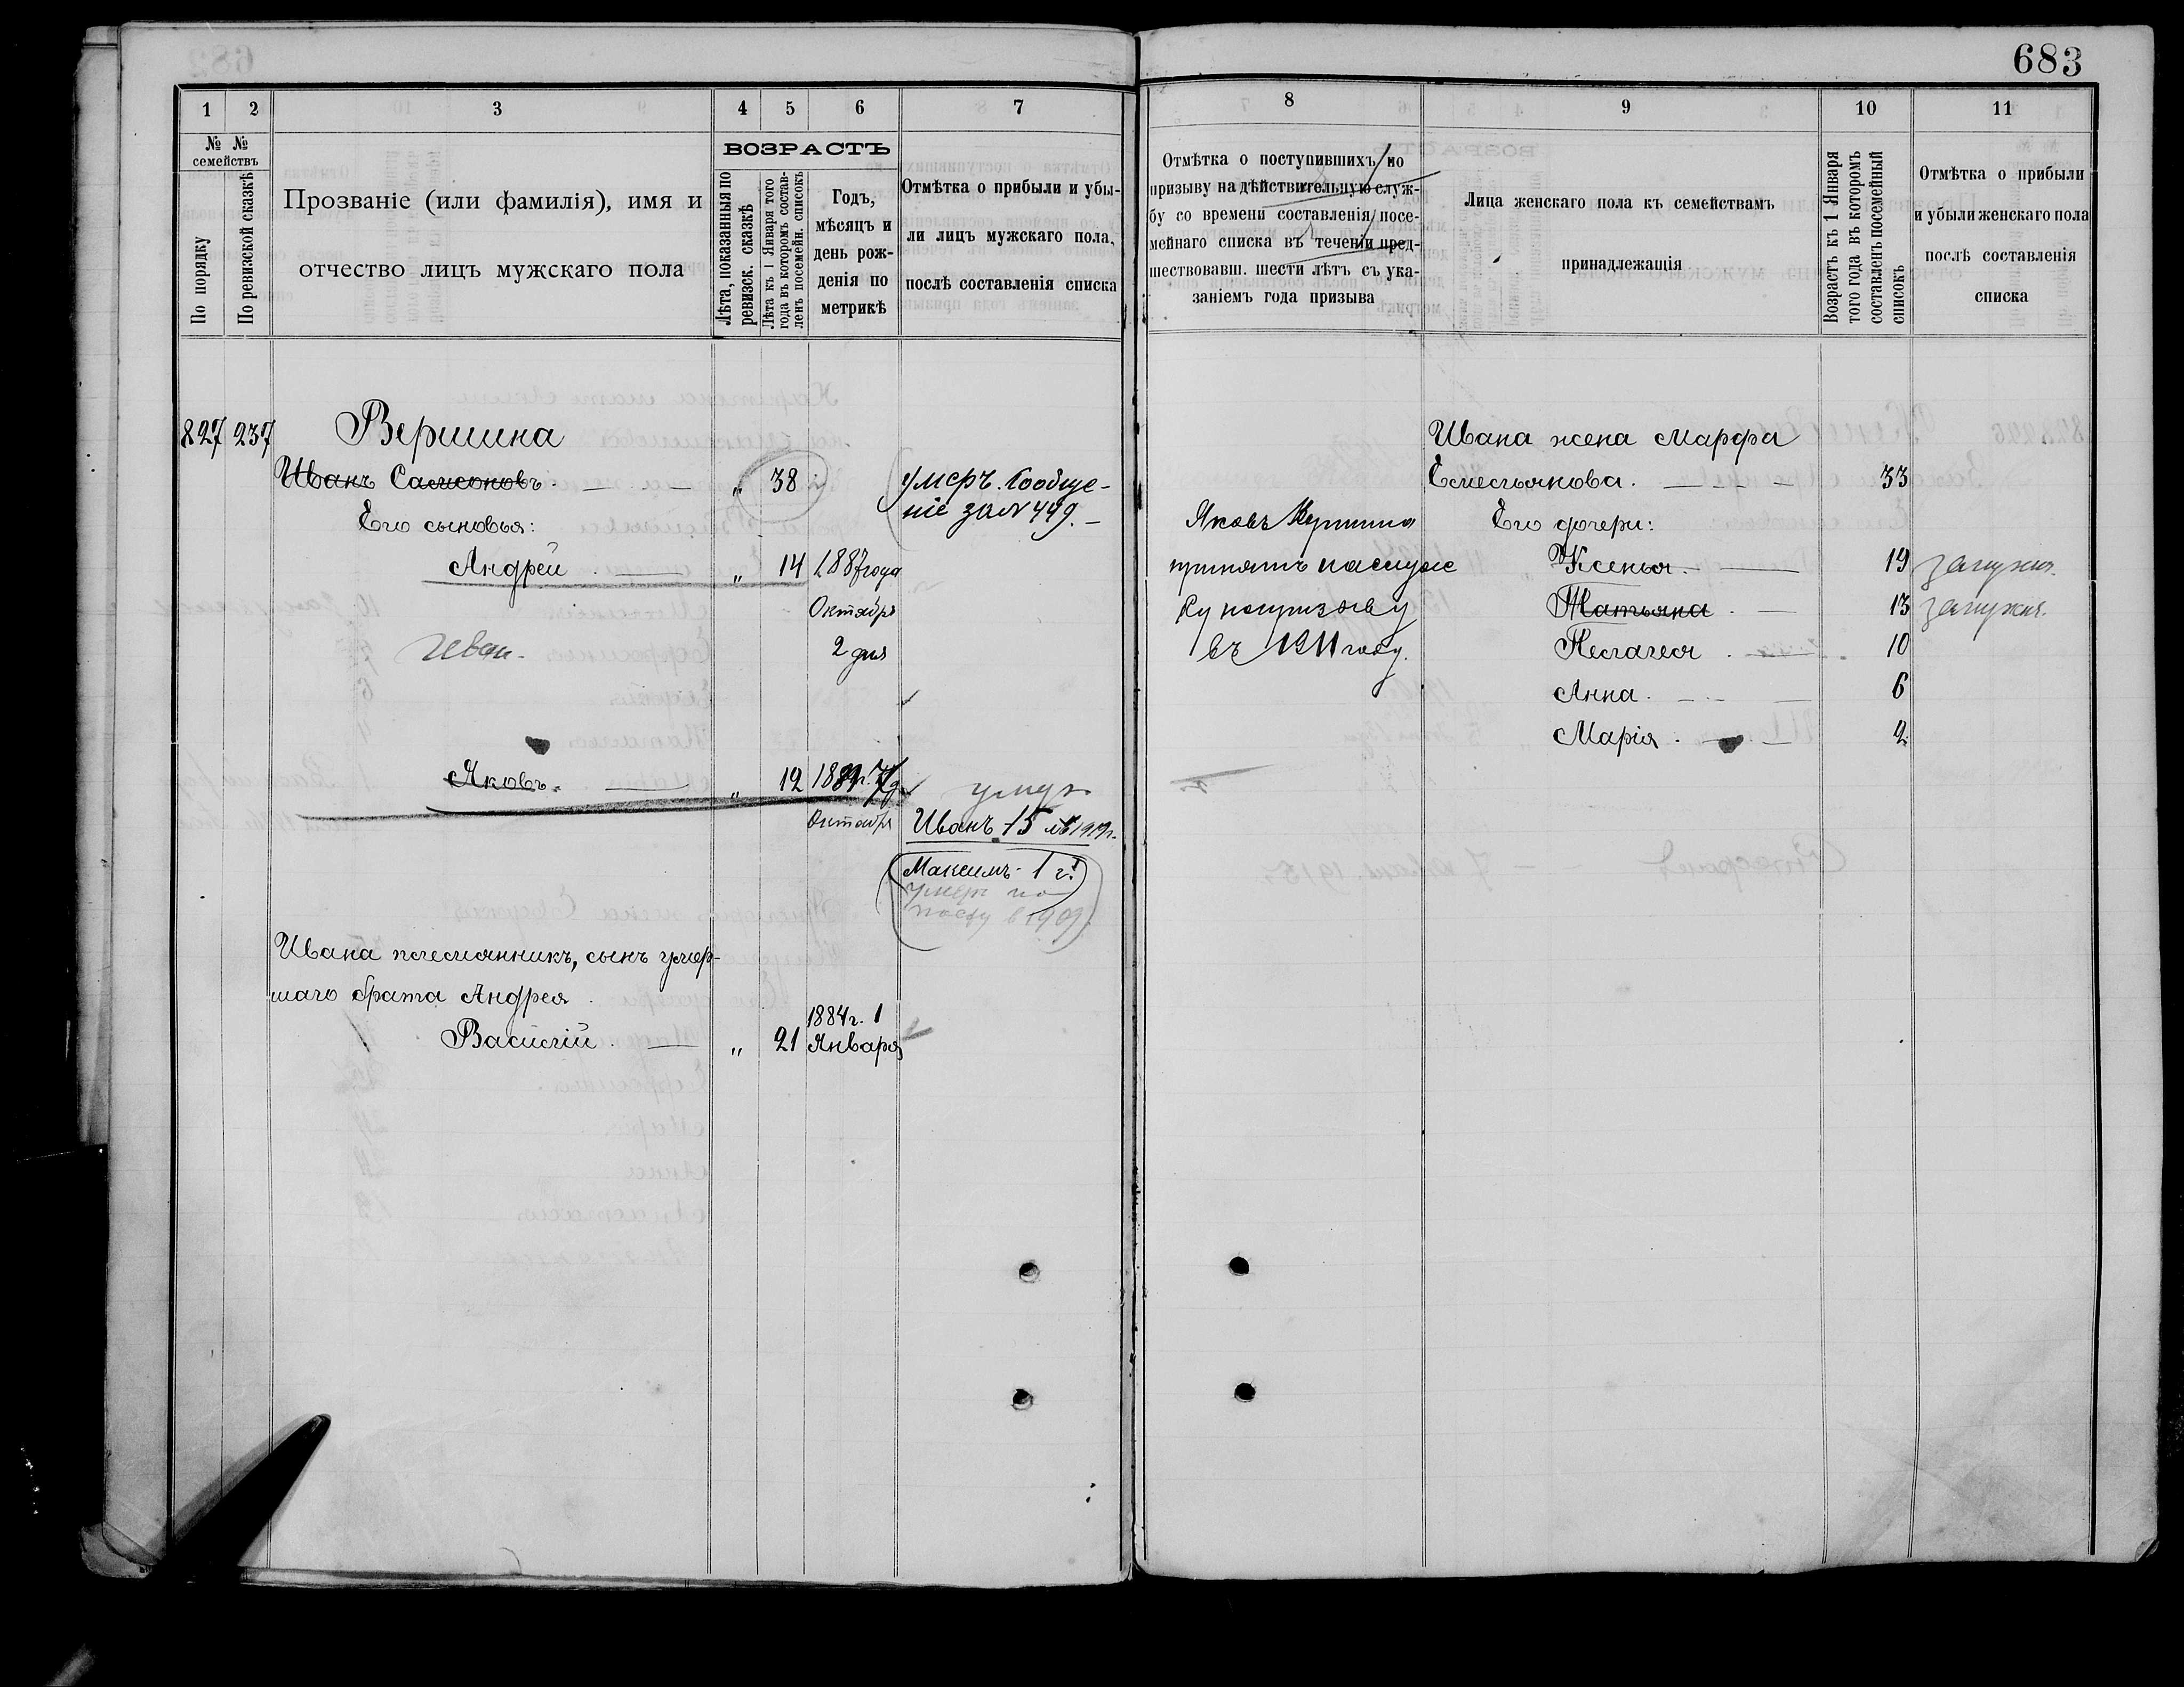 683
1
2
3
4
5
6
7
№ №
семействъ
По порядку
По ревизской сказкѣ
Прозваніе (или фамилія), имя и
отчество лицъ мужскаго пола
ВОЗРАСТЪ
Лѣта, показанныя по
ревизск. сказкѣ
Лѣта къ 1 Января того
года въ которомъ состав-
ленъ посемейн. списокъ
Годъ,
мѣсяцъ и
день рож-
денія по
метрикѣ
Отмѣтка о прибыли и убы-
ли лицъ мужскаго пола,
послѣ составленія списка
827 237 Вершина
Иванъ Самсоновъ. „ 38 умеръ. Сообще-
ніе за № 449.
Его сыновья:
Андрей „ 14 1887 года
Октября
Иван. 2 дня
Яковъ. „ 12
Октября Иванъ 15
Максимъ 1 г.
Ивана племянникъ, сынъ умер-
шаго брата Андрея.
1884 г. 1
Василій. „ 21 Января
8
9
10
11
Отмѣтка о поступившихъ по
призыву на дѣйствительную служ-
бу со времени составленія посе-
мейнаго списка въ теченіи пред-
шествовавш. шести лѣтъ съ ука-
заніемъ года призыва
Лица женскаго пола къ семействамъ
принадлежащія
Возрастъ къ 1 Января
того года въ которомъ
составленъ посемейный
списокъ
Отмѣтка о прибыли
и убыли женскаго пола
послѣ составленія
списка
Ивана жена Марфа
Емельянова. 33
Яковъ
Его дочери:
принятъ на служ
Ксенья. 19 замужня.
бу по призыву
Татьяна. 13 замужня.
въ 1911 году.
Пелагея. 10
Анна. 6
Марія. 2